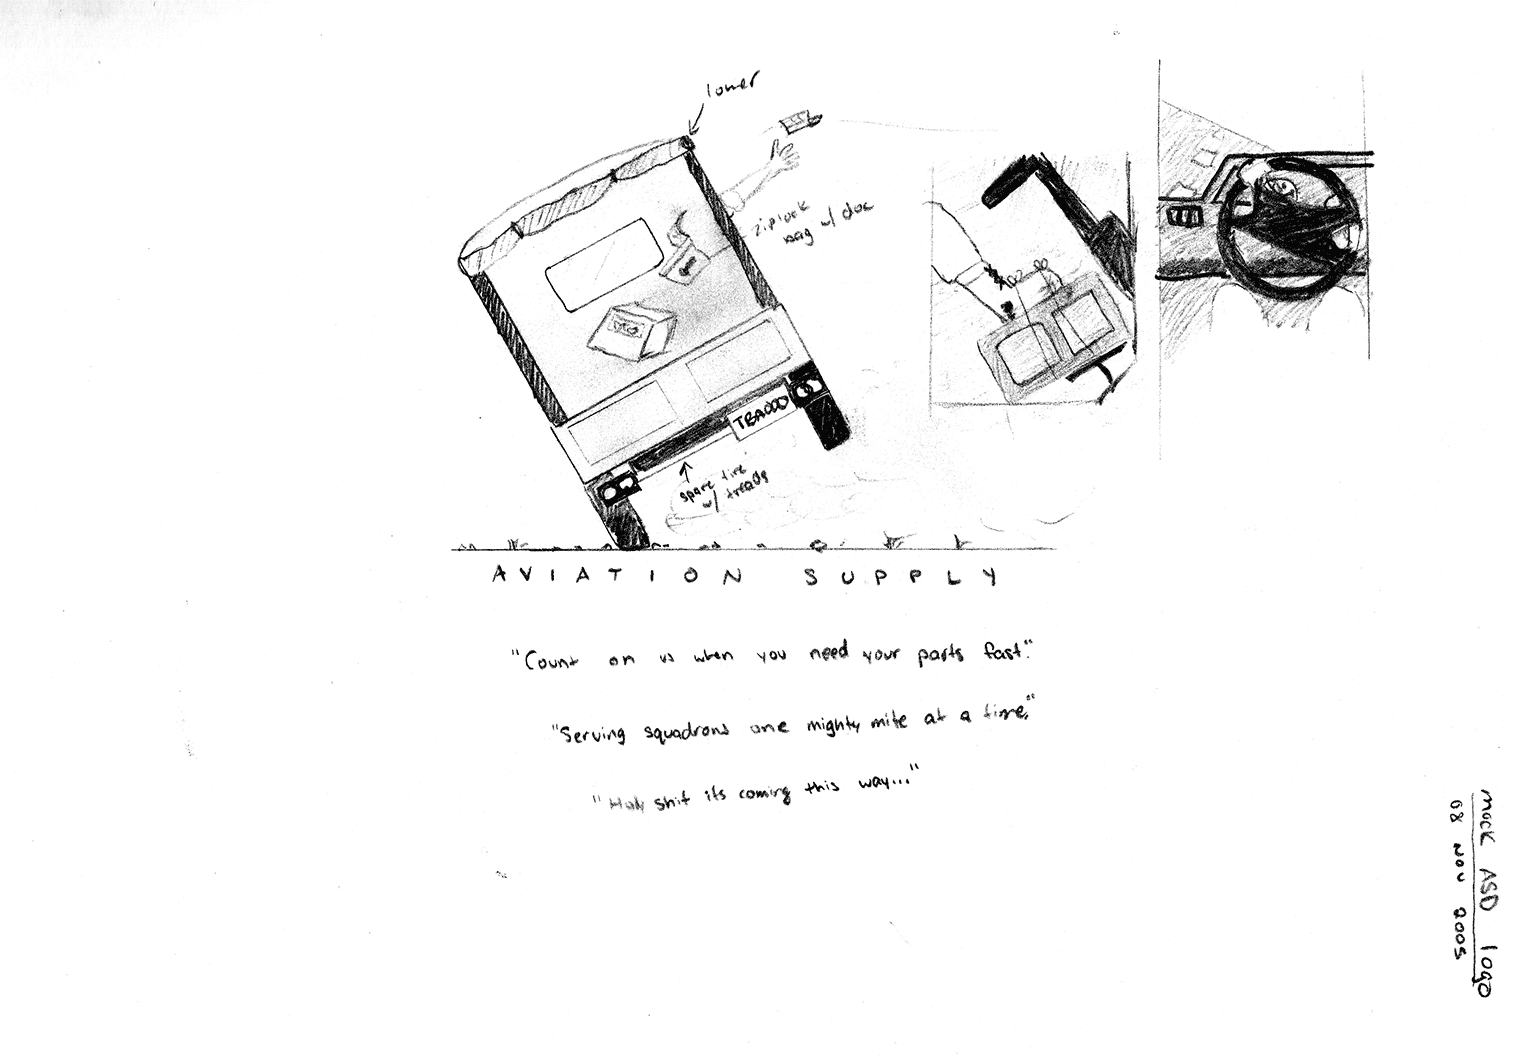 lower
ziplock
bag w/ doc
TBA000
spare tire
w/ treads
AVIATION SUPPLY
"Count on us when you need your parts fast."
"Serving squadrons one mighty mite at a time."
"Holy shit its coming this way..."
mock ASD logo
08 NOV 2005